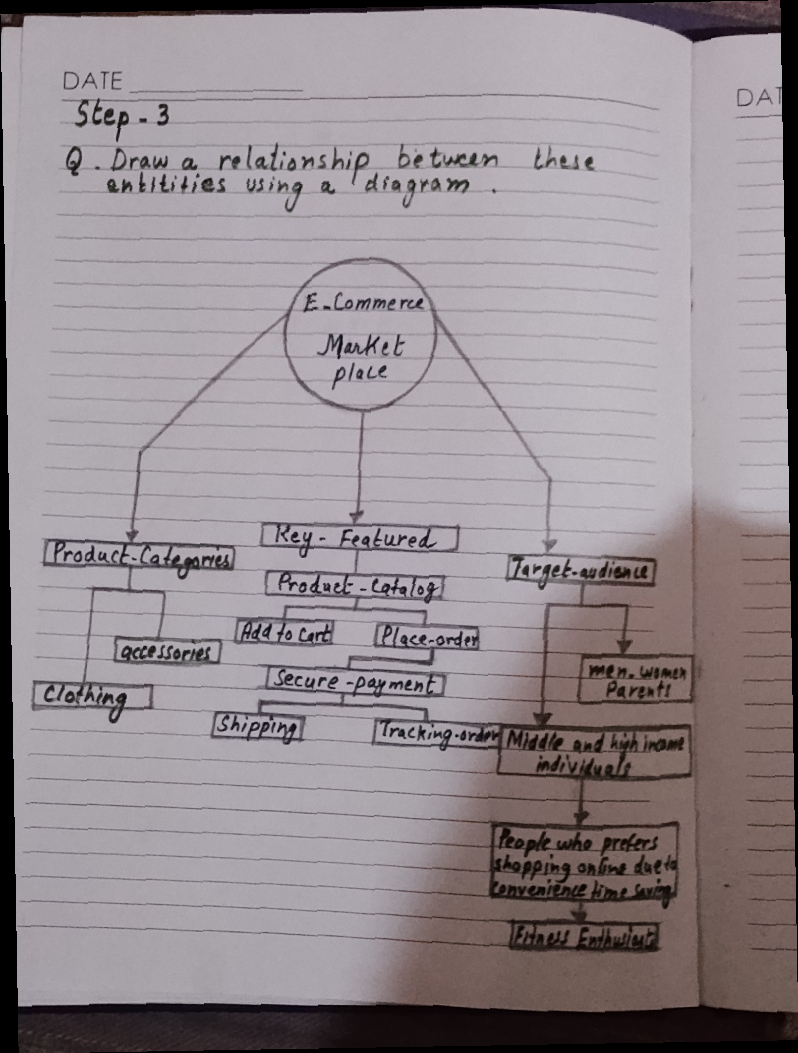 DATE
DAT
Step - 3
Q. Draw a relationship between these
entitities using a diagram.
E-Commerce
Market
place
Product-Categories
accessories
Clothing
Key - Featured
Product - Catalog
Add to Cart
Place-order
Secure - payment
Shipping
Tracking-order
Target-audience
men-women
Parents
Middle and high income
individuals
People who prefers
shopping online due to
convenience time saving
Fitness Enthusiast